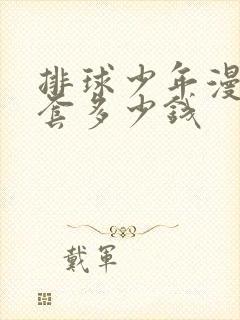 排球少年漫
套多少钱
戴軍